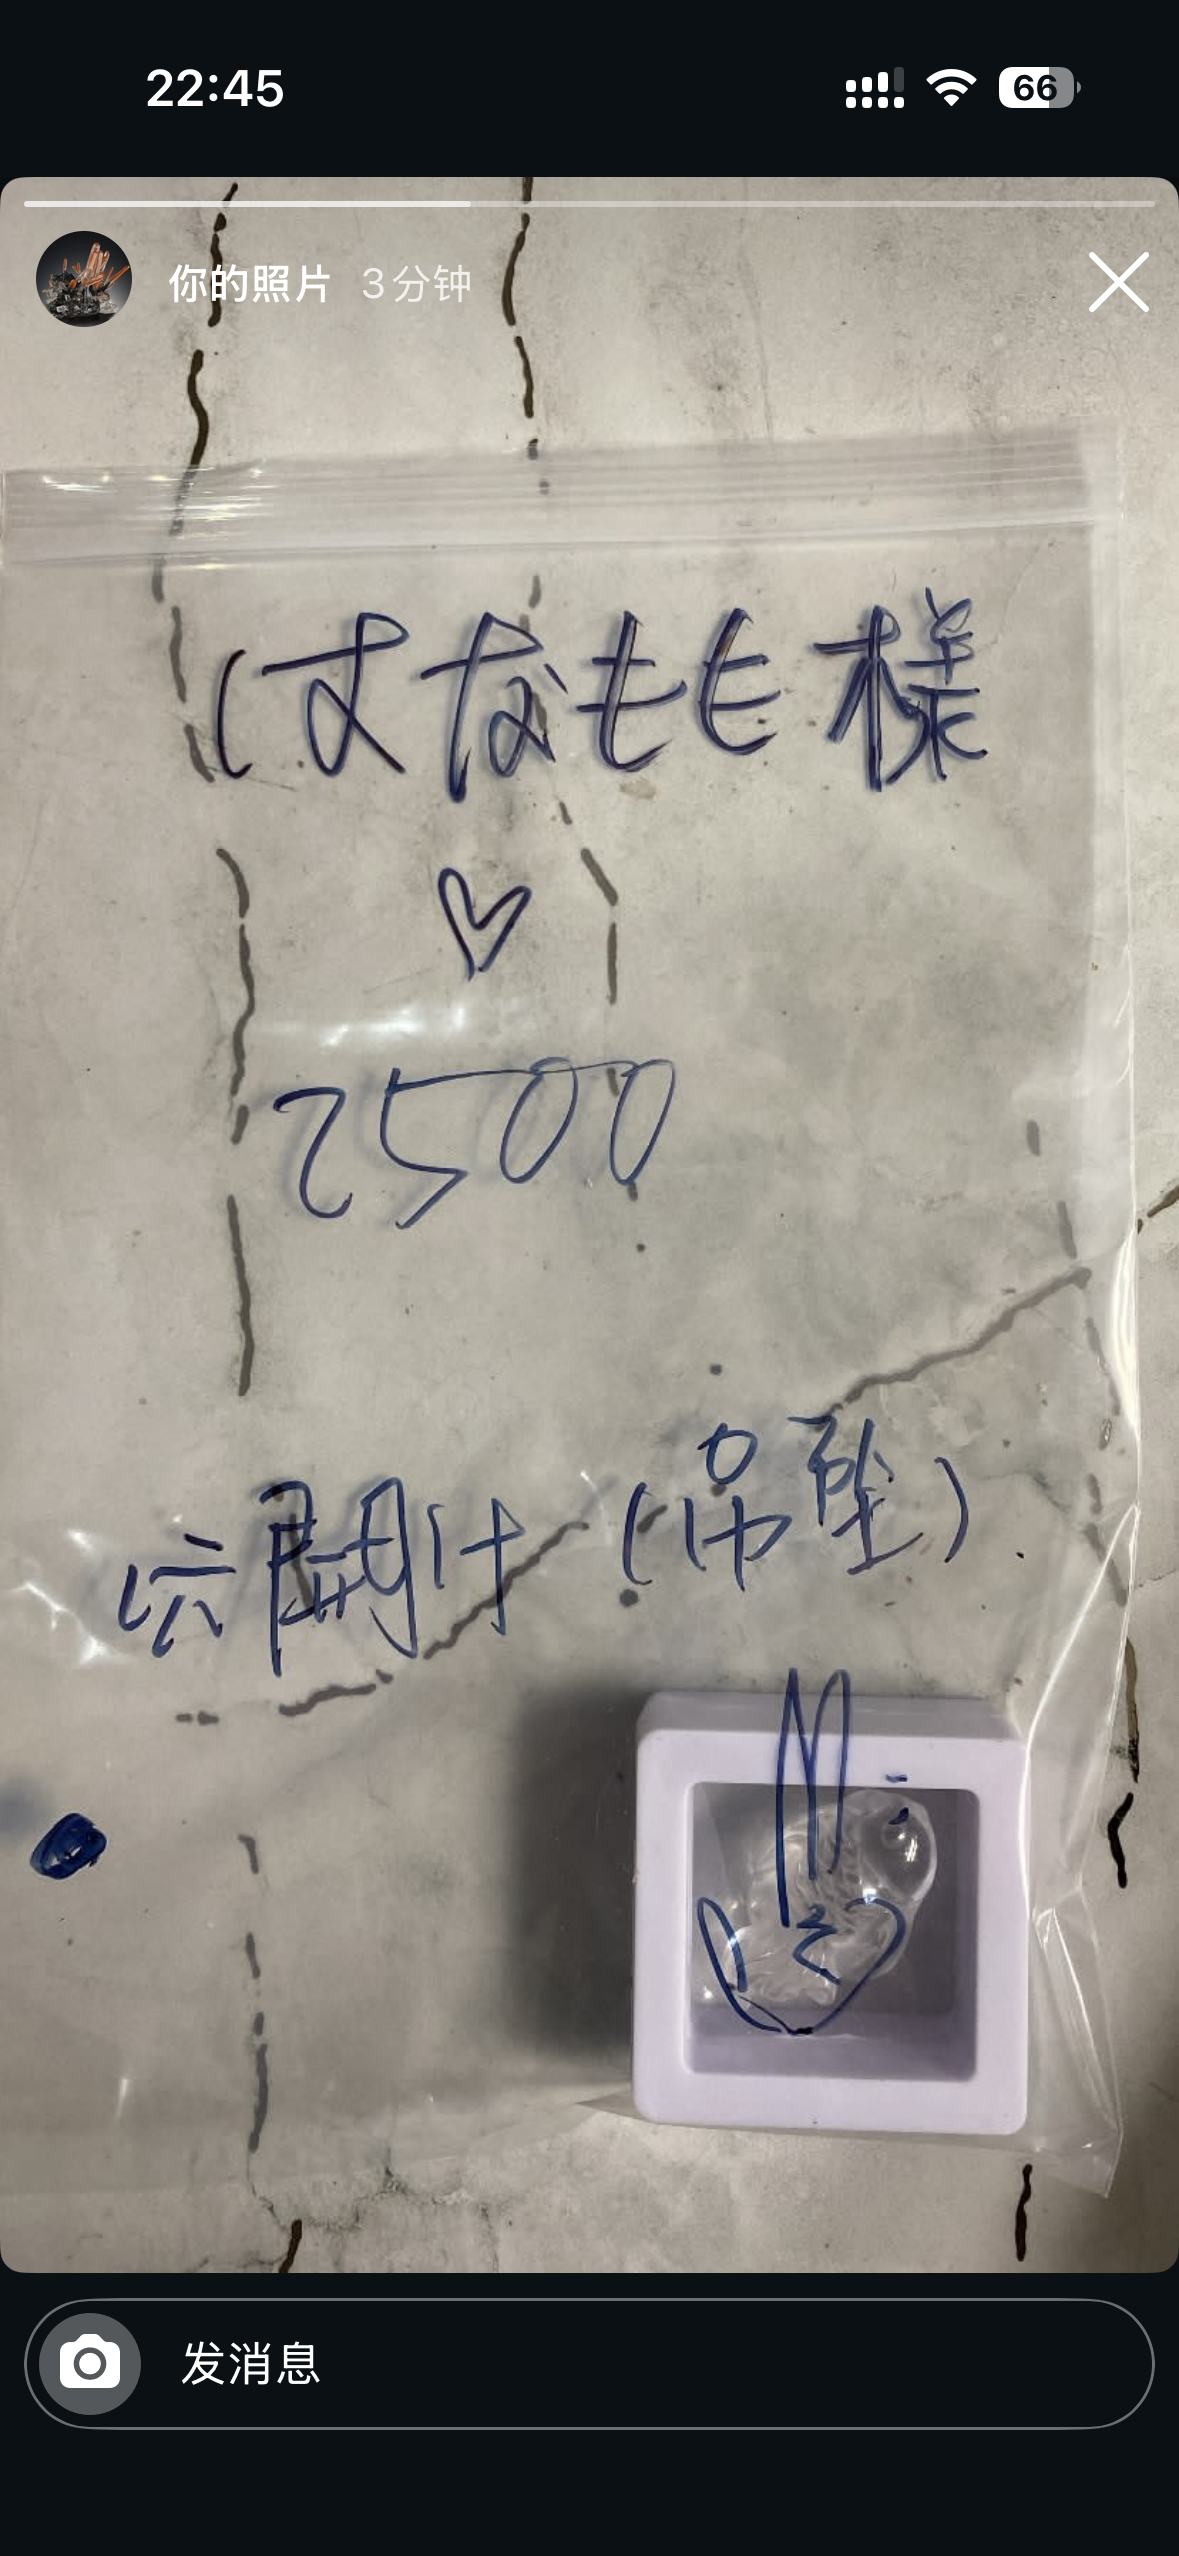 22:45
66
你的照片 3分钟
はなもも様
♡
2500
公開けけ（吊坠）
发消息